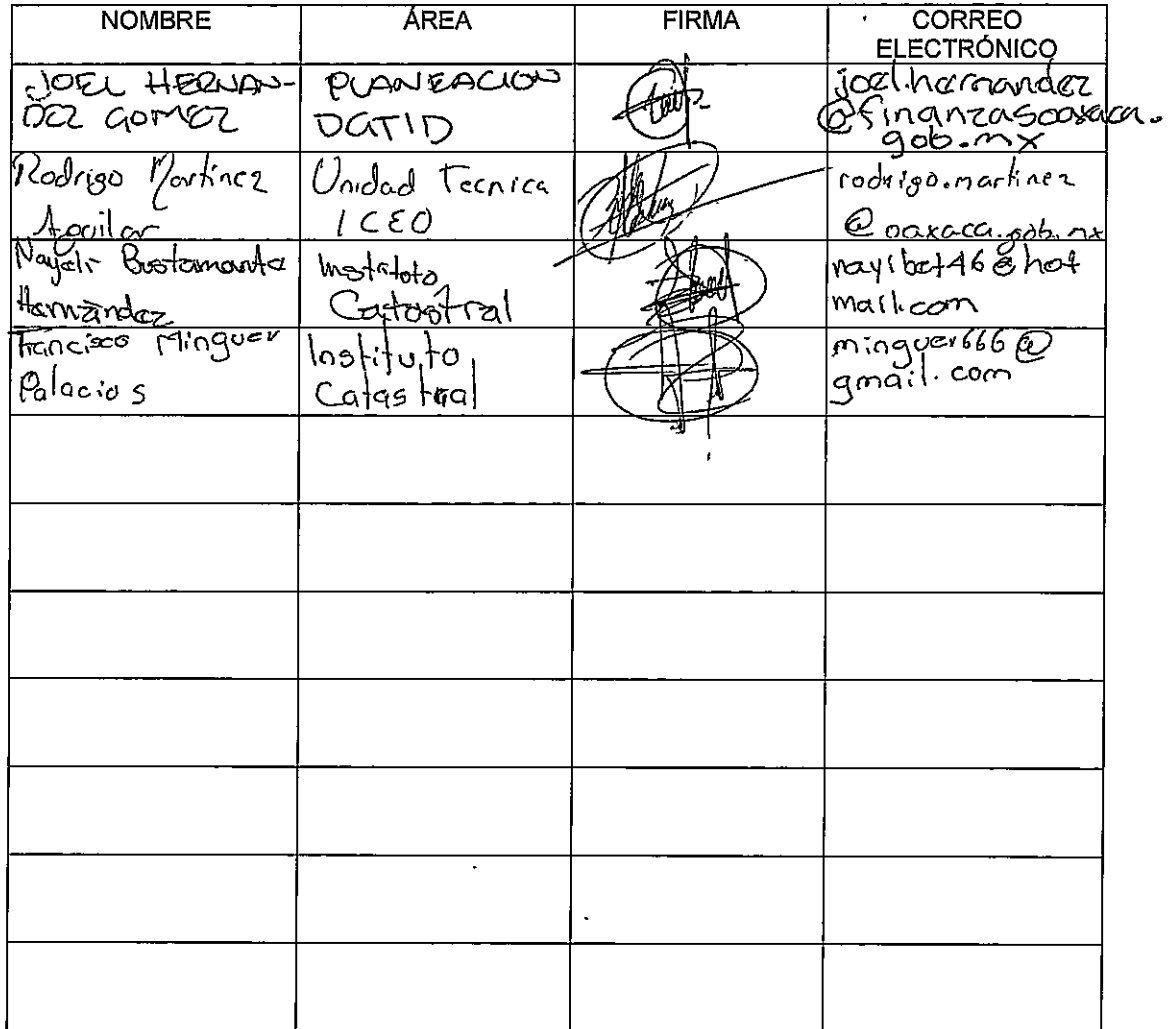 NOMBRE
ÁREA
FIRMA
CORREO
ELECTRÓNICO
JOEL HERNAN-
DEZ GOMEZ
PLANEACION
DGTID
joel.hernandez
@finanzasoaxaca.
gob.mx
Rodrigo Martinez
Aguilar
Unidad Tecnica
ICEO
rodrigo.martinez
@oaxaca.gob.mx
Nayeli Bustamante
Hernández
Instituto
Catastral
nayibet46@hot
mail.com
Francisco Minguer
Palacios
Instituto
Catastral
minguer666@
gmail.com